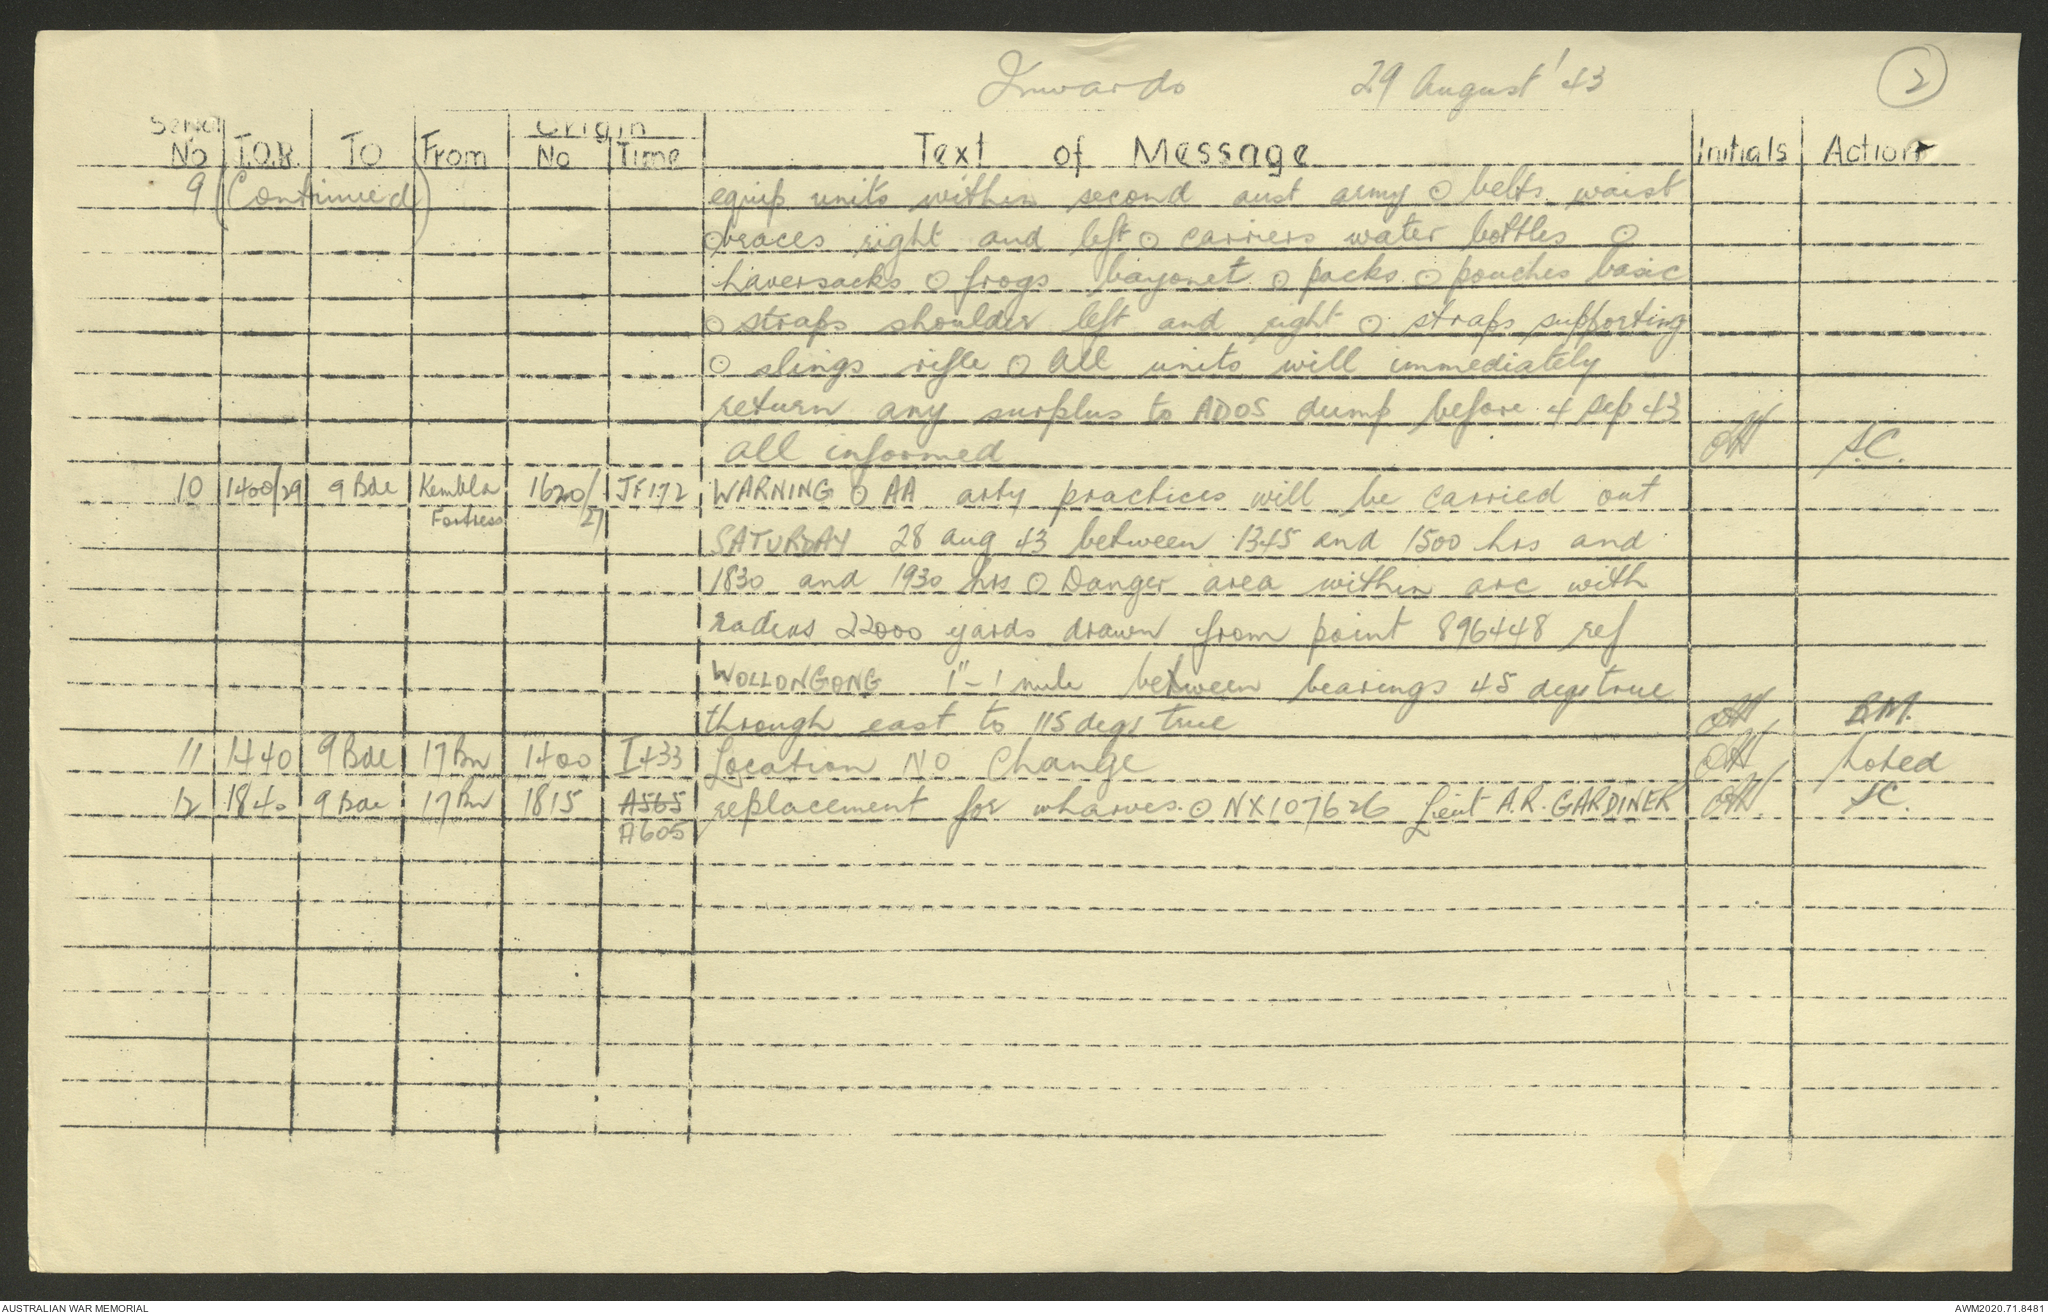 Inwards 29 August '43 2
Serial No T.O.R. TO From Origin No Time Text of Message Initials Action
9 (Continued) equip units within second aust army o belts waist
o braces right and left o carriers water bottles o
haversacks o frogs bayonet o packs o pouches basic
o straps shoulder left and right o straps supporting
o slings rifle o all units will immediately
return any surplus to ADOS dump before 4 Sep 43
all informed S.C.
10 1400/29 9 Bde Kembla Fortress 1620/27 JF172 WARNING o AA arty practices will be carried out
SATURDAY 28 aug 43 between 1345 and 1500 hrs and
1830 and 1930 hrs o Danger area within arc with
radius 22000 yards drawn from point 896448 ref
WOLLONGONG 1"-1 mile between bearings 45 degs true
through east to 115 degs true B.M.
11 1440 9 Bde 17 Bn 1400 I433 Location NO Change Noted
12 1840 9 Bde 17 Bn 1815 A565 A605 replacement for wharves o NX107626 Lieut A.R. GARDINER SC.
AUSTRALIAN WAR MEMORIAL AWM2020.71.8481